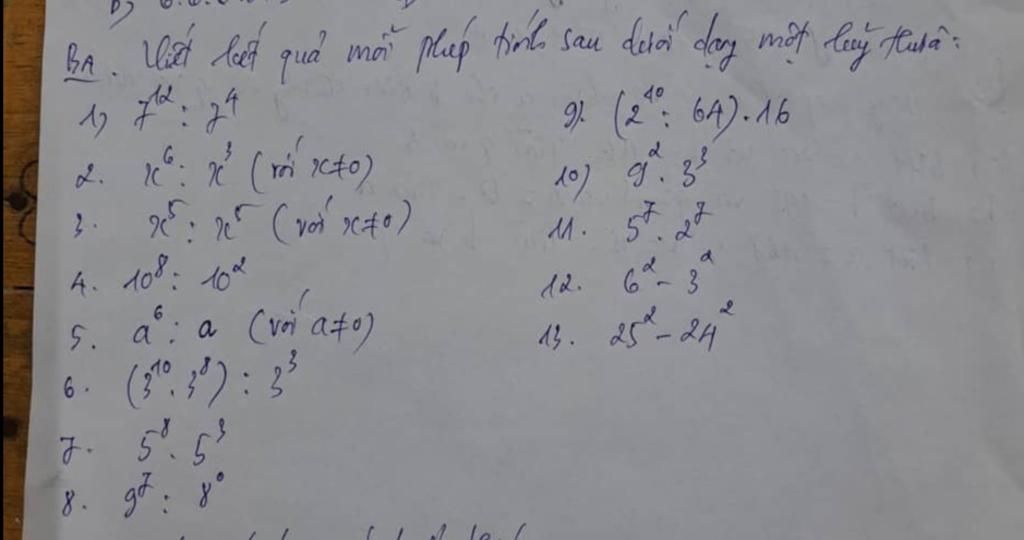 BA. Viết kết quả mỗi phép tính sau dưới dạng một luỹ thừa:
1) 7¹² : 7⁴
2. x⁶ : x³ (với x≠0)
3. x⁵ : x⁵ (với x≠0)
4. 10⁸ : 10²
5. a⁶ : a (với a≠0)
6. (3¹⁰ . 3⁸) : 3³
7. 5⁸ . 5³
8. 9⁷ : 8⁰
9). (2¹⁰ : 64) . 16
10) 9² . 3³
11. 5⁷ . 2⁷
12. 6² - 3²
13. 25² - 24²